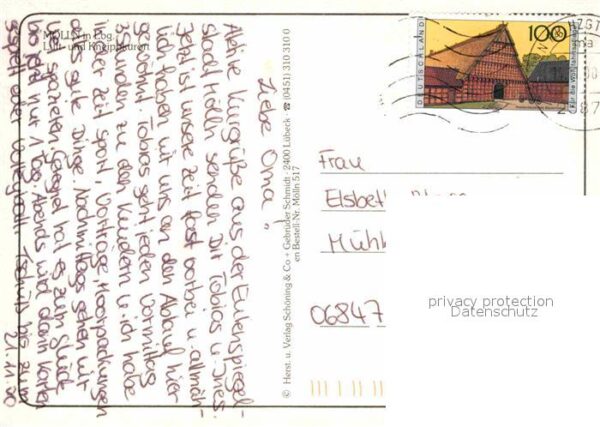 MÖLLN in Lbg.
Luft- und Kneippkurort
Liebe Oma,
Kurgrüße aus der Eulenspiegel-
stadt Mölln senden Dir Tobias u. Ines.
Jetzt ist unsere Zeit fast vorbei u. allmäh-
lich haben wir uns an den Ablauf hier
gewöhnt. Tobias geht jeden Vormittag
3 Stunden zu den Kindern u. ich habe
in der Zeit Sport, Vorträge, Moorpackungen
das gute Dinge. Nachmittags gehen wir
spazieren. Geregnet hat es zum Glück
nur 1 Tag. Abends wird dann Karten
gespielt oder
Tschüß bis zum
21.11.
© Herst. u. Verlag Schöning & Co + Gebrüder Schmidt · 2400 Lübeck · ☎ (0451) 310 310 0
en Bestell-Nr. Mölln 517
DEUTSCHLAND
100
Für die Wohlfahrtspflege
Frau
Elsbeth
Mühl
06847
privacy protection
Datenschutz